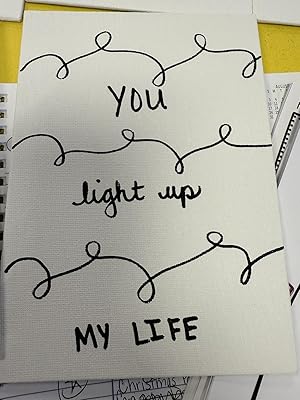 YOU
light up
MY LIFE
Christmas